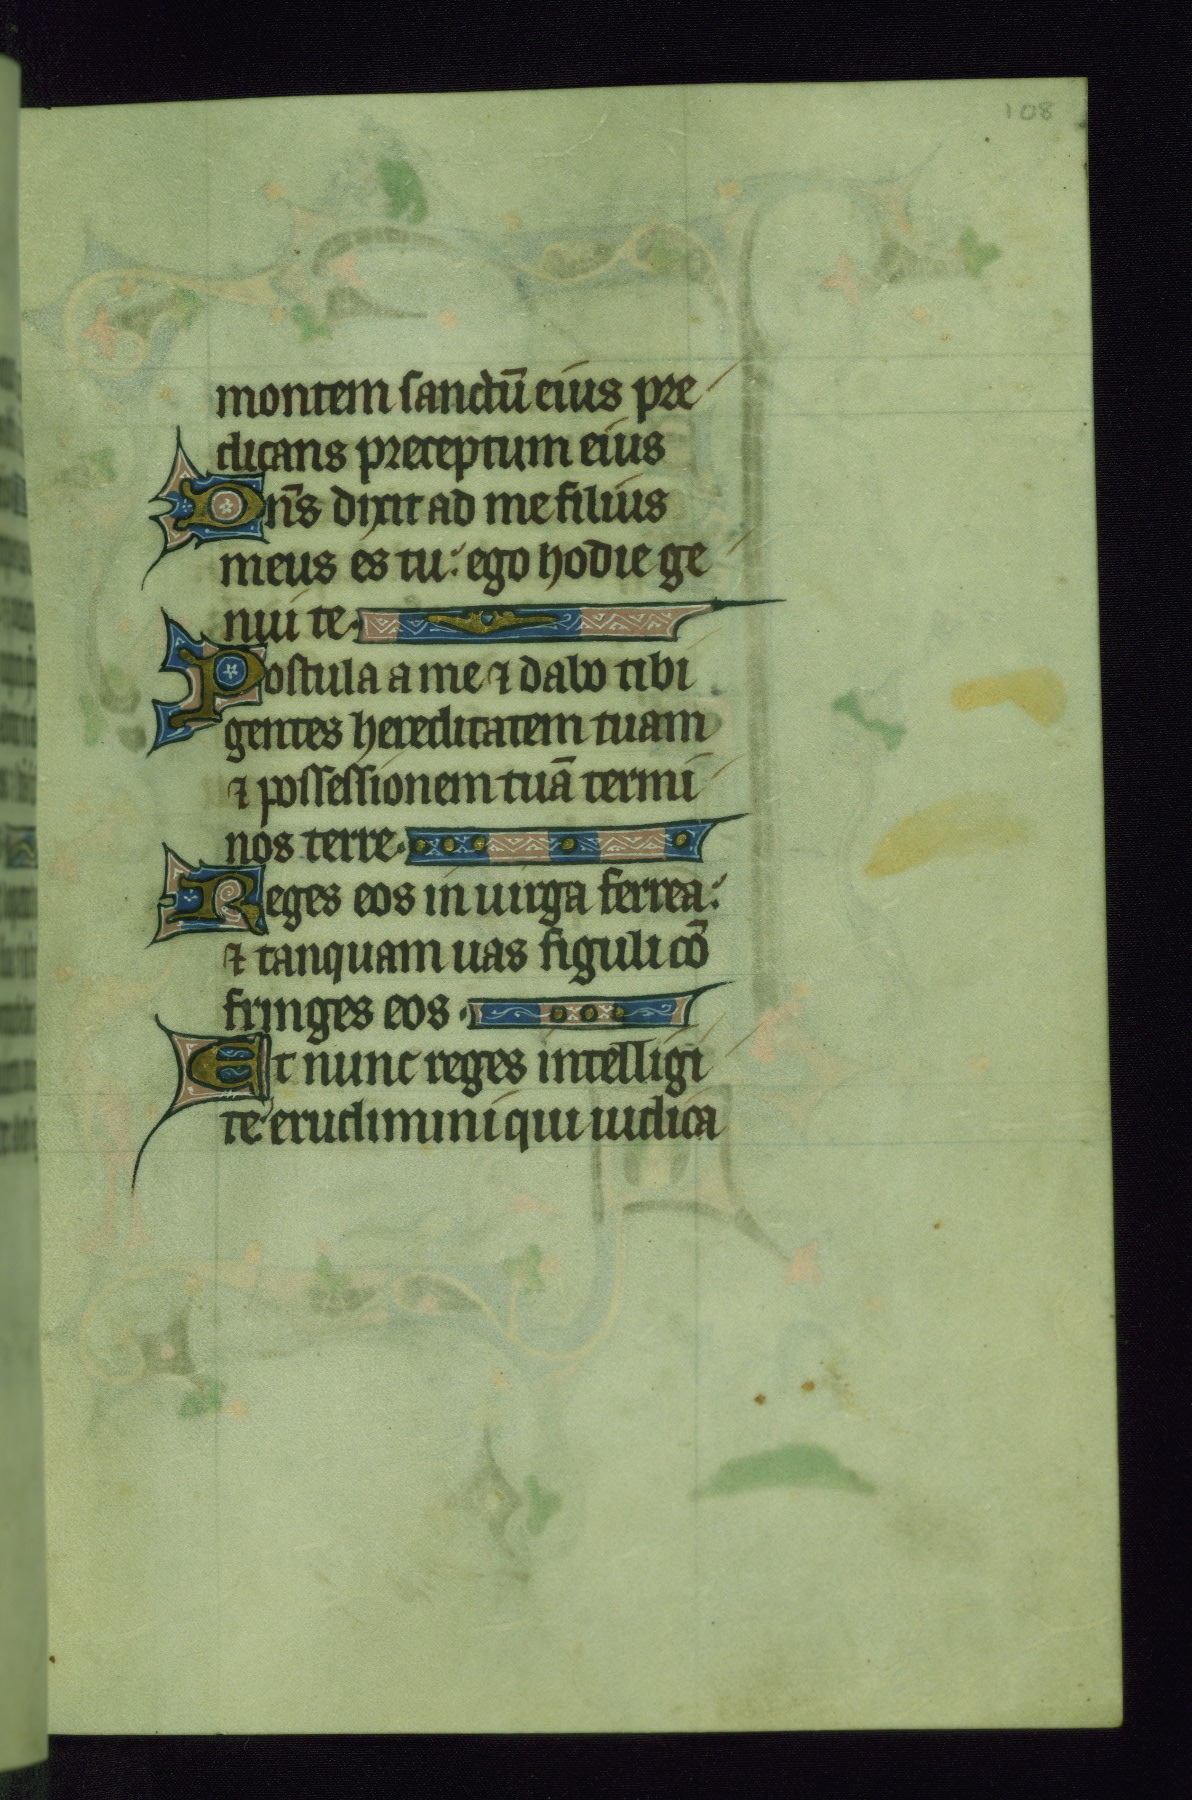 108
montem sanctū eius pre
dicans preceptum eius
Dn̄s dixit ad me filius
meus es tu: ego hodie ge
nui te.
Postula a me ⁊ dabo tibi
gentes hereditatem tuam
⁊ possessionem tuā termi
nos terre.
Reges eos in uirga ferrea:
⁊ tanquam uas figuli cō
fringes eos.
Et nunc reges intelligi
te: erudimini qui iudica